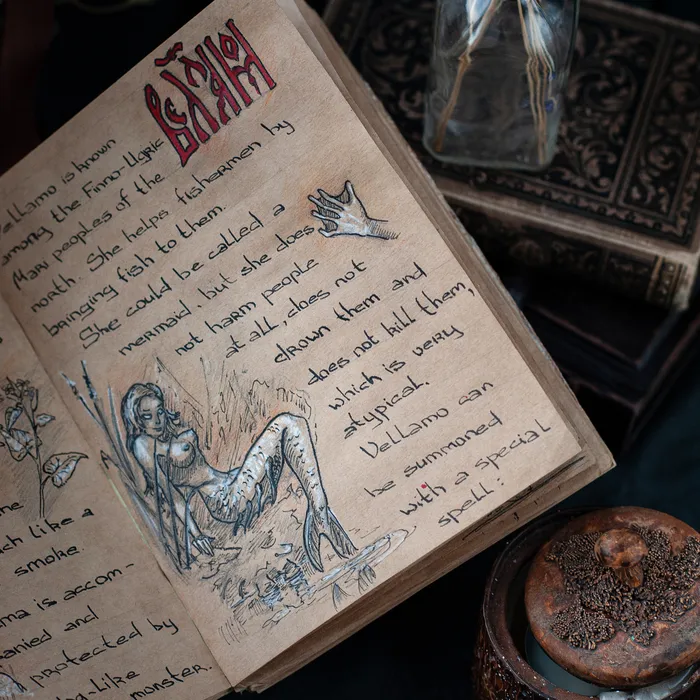 me
ch like a
smoke.
ma is accom-
anied and
protected by
og-like monster.
Vellamo is known
among the Finno-Ugric
Mari peoples of the
north. She helps fishermen by
bringing fish to them.
She could be called a
mermaid, but she does
not harm people
at all, does not
drown them and
does not kill them,
which is very
atypical.
Vellamo can
be summoned
with a special
spell: